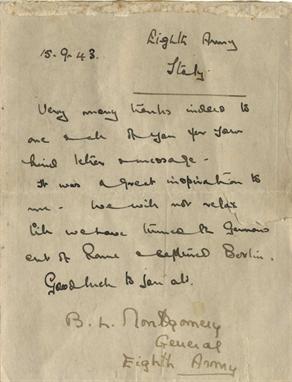 15.9.43. Eighth Army
Italy.
Very many thanks indeed to
one & all of you for your
kind letter & message -
It was a great inspiration to
me - We will not relax
till we have turned the Germans
out of Rome & captured Berlin.
Good luck to you all.
B. L. Montgomery
General
Eighth Army